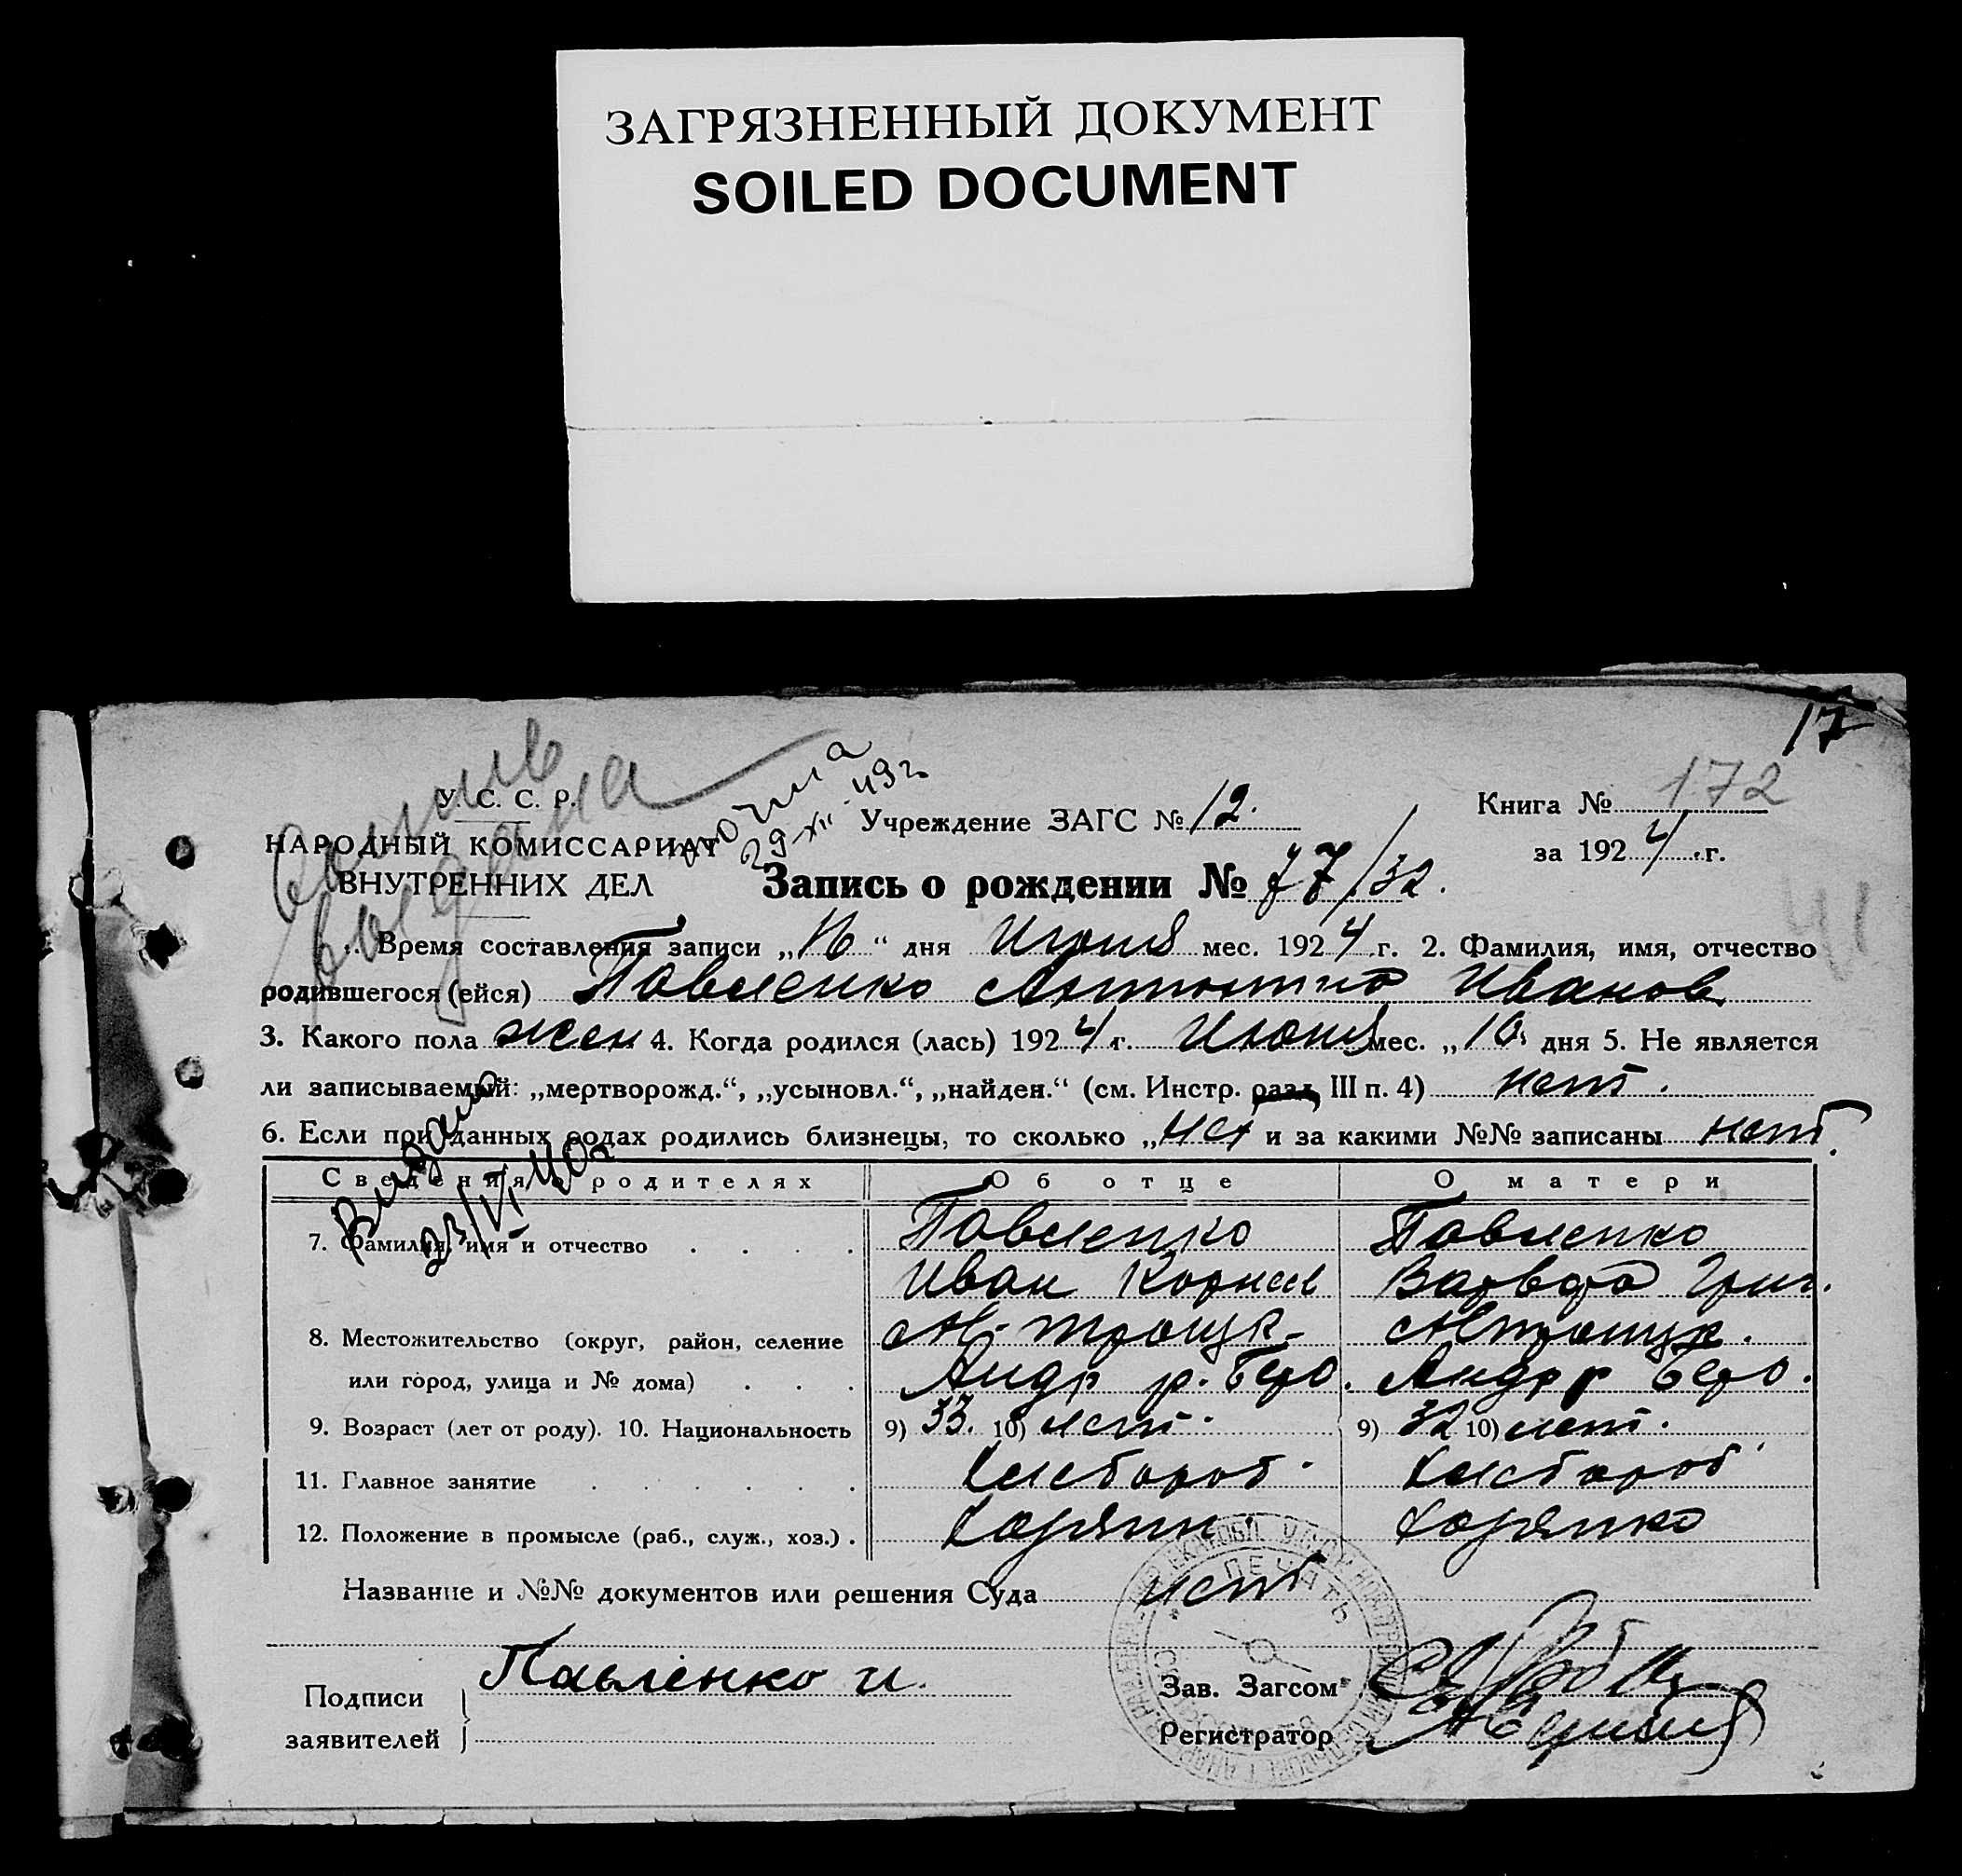 ЗАГРЯЗНЕННЫЙ ДОКУМЕНТ
SOILED DOCUMENT
17
У. С. С. Р.
НАРОДНЫЙ КОМИССАРИАТ
ВНУТРЕННИХ ДЕЛ
29-XII-49г
Учреждение ЗАГС № 12.
Книга № 172
за 1924 г.
Запись о рождении № 77/32.
41
Время составления записи „16“ дня Июня мес. 1924 г. 2. Фамилия, имя, отчество
родившегося (ейся) Павленко Иванов
3. Какого пола жен 4. Когда родился (лась) 1924 г. Июня мес. „10 дня 5. Не является
ли записываемый: „мертворожд.“, „усыновл.“, „найден.“ (см. Инстр. разд. III п. 4) нет.
6. Если при данных родах родились близнецы, то сколько „нет и за какими №№ записаны нет.
Сведения о родителях Об отце О матери
7. Фамилия, имя и отчество Павленко Павленко
Иван Корнеев Варвара Григ.
8. Местожительство (округ, район, селение
или город, улица и № дома) Андр р. Берд. Андр р Берд.
9. Возраст (лет от роду). 10. Национальность 9) 33. 10) нет. 9) 32 10) нет.
11. Главное занятие Хлебороб. Хлебороб
12. Положение в промысле (раб., служ., хоз.)
Название и №№ документов или решения Суда нет
ПЕЧАТЬ
Подписи
заявителей
Павленко И.
Зав. Загсом
Регистратор